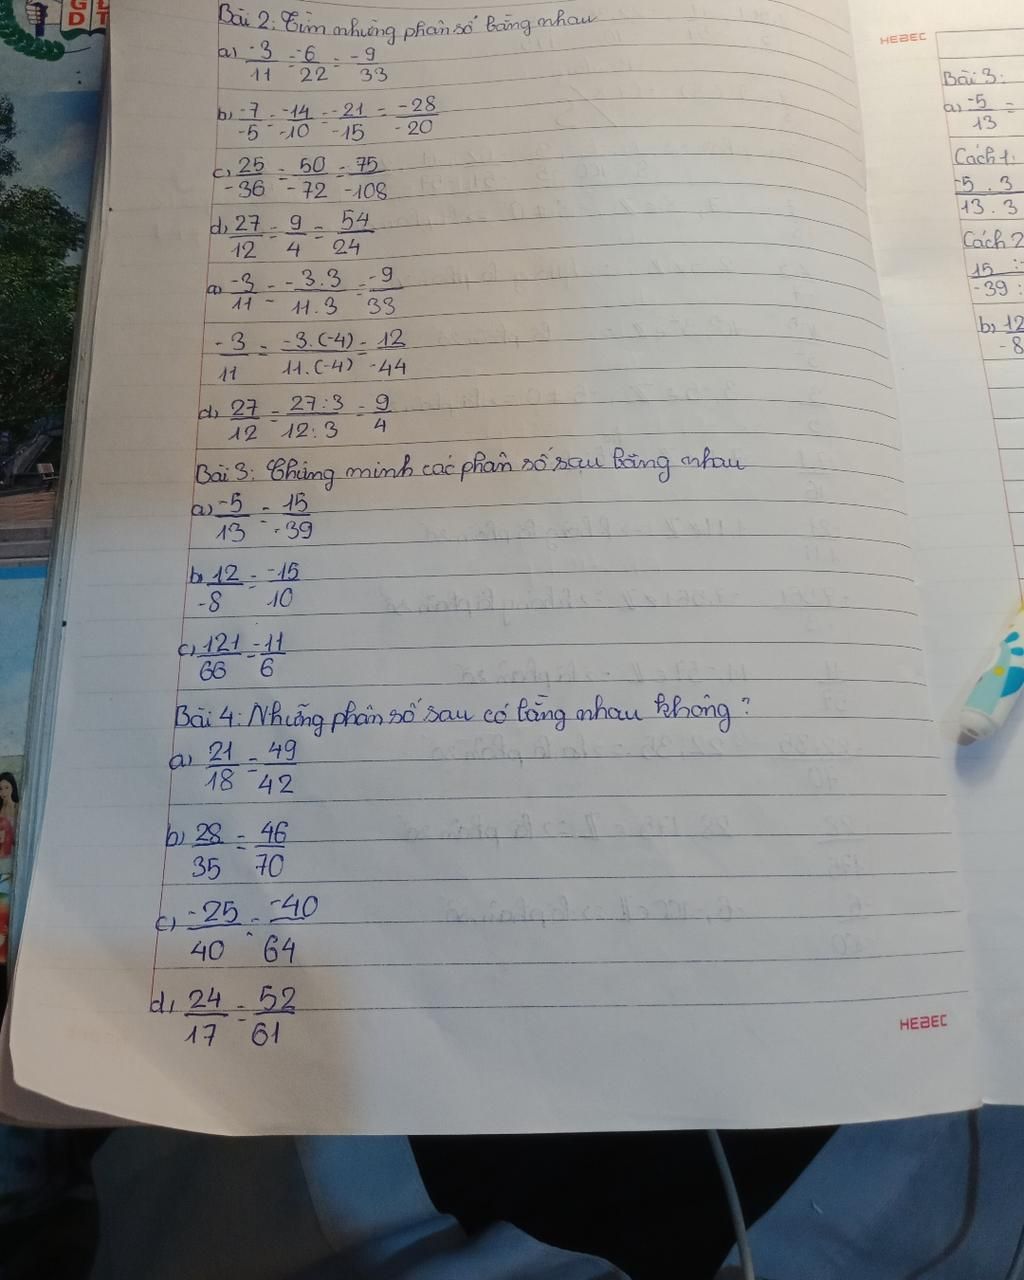 HEBEC
Bài 2: Tìm những phân số bằng nhau
a) -3/11 = -6/22 = -9/33
b) -7/-5 = -14/-10 = -21/-15 = -28/-20
c) 25/-36 = 50/-72 = 75/-108
d) 27/12 = 9/4 = 54/24
a) -3/11 = -3.3/11.3 = -9/33
-3/11 = -3.(-4)/11.(-4) = 12/-44
d) 27/12 = 27:3/12:3 = 9/4
Bài 3: Chứng minh các phân số sau bằng nhau
a) -5/13 = 15/-39
b) 12/-8 = -15/10
c) 121/66 = -11/6
Bài 4: Những phân số sau có bằng nhau không?
a) 21/18 = 49/42
b) 28/35 = 46/70
c) -25/40 = -40/64
d) 24/17 = 52/61
HEBEC
Bài 3:
a) -5/13 =
Cách 1:
-5.3/13.3
Cách 2
15:/-39:
b) 12/-8